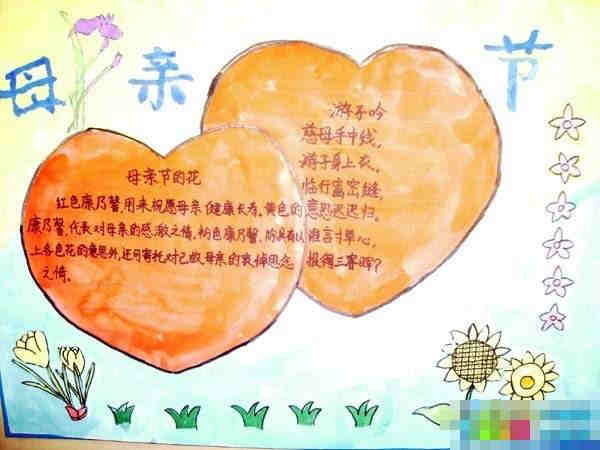 母亲节
母亲节的花
红色康乃馨，用来祝愿母亲健康长寿。黄色的
康乃馨，代表对母亲的感激之情。粉色康乃馨，除具有以
上各色花的意思外，还可寄托对已故母亲的哀悼思念
之情。
游子吟
慈母手中线，
游子身上衣。
临行密密缝，
意恐迟迟归。
谁言寸草心，
报得三春晖？